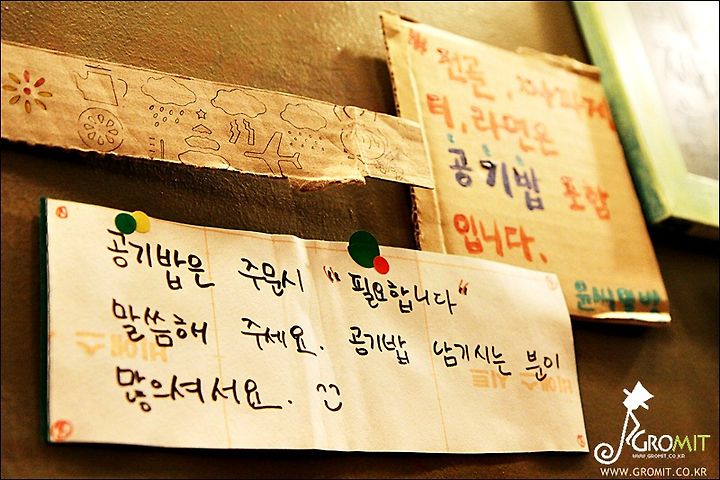 " 전골, 파파게
티, 라면은
공기밥 포함
입니다.
공기밥은 주문시 "필요합니다"
말씀해 주세요. 공기밥 남기시는 분이
많으셔서요.
GROMIT
WWW.GROMIT.CO.KR
WWW.GROMIT.CO.KR